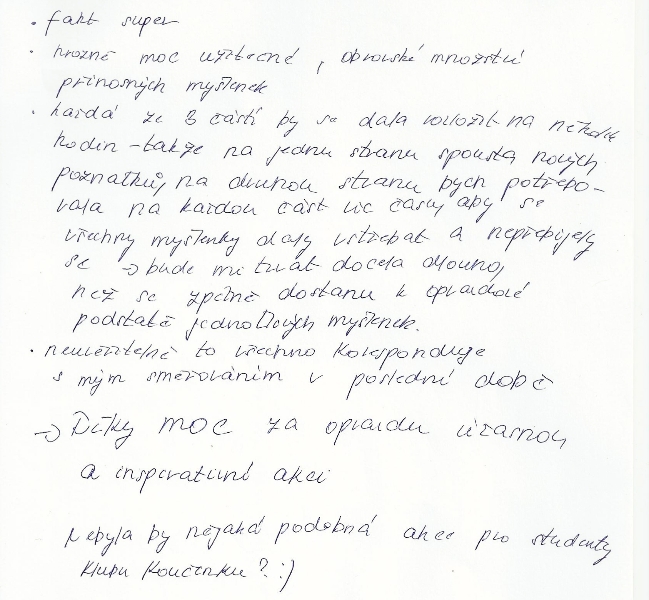 • fakt super
• hrozně moc užitečné, obrovské množství
přínosných myšlenek
• každá ze 3 částí by se dala rozložit na několik
hodin – takže na jednu stranu spousta nových
poznatků, na druhou stranu bych potřebo-
vala na každou část víc času, aby se
všechny myšlenky daly vstřebat a nepřebíjely
se → bude mi trvat docela dlouho,
než se zpětně dostanu k opravdové
podstatě jednotlivých myšlenek.
• neuvěřitelně to všechno koresponduje
s mým směřováním v poslední době
→ Díky moc za opravdu úžasnou
a inspirativní akci
Nebyla by nějaká podobná akce pro studenty
klubu Koučinku? :)